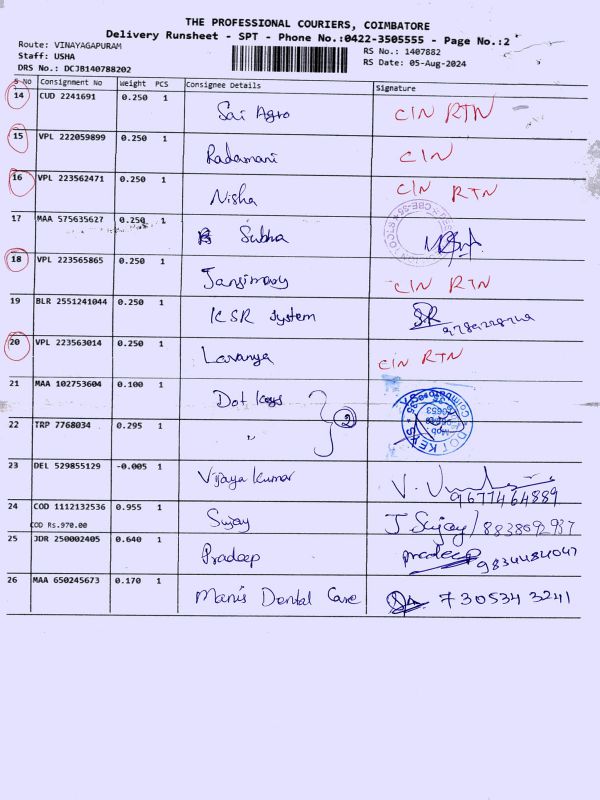 THE PROFESSIONAL COURIERS, COIMBATORE
Delivery Runsheet - SPT - Phone No.:0422-3505555 - Page No.:2
Route: VINAYAGAPURAM
Staff: USHA
DRS No.: DCJB140788202
RS No.: 1407882
RS Date: 05-Aug-2024
S No Consignment No Weight PCS Consignee Details Signature
14 CUD 2241691 0.250 1 Sai Agro CIN RTN
15 VPL 222059899 0.250 1 Radamani CIN
16 VPL 223562471 0.250 1 Nisha CIN RTN
17 MAA 575635627 0.250 1 Subha
18 VPL 223565865 0.250 1 CIN RTN
19 BLR 2551241044 0.250 1 KSR System
20 VPL 223563014 0.250 1 Lavanya CIN RTN
21 MAA 102753604 0.100 1 Dot Keys
22 TRP 7768034 0.295 1 " 2
23 DEL 529855129 -0.005 1 Vijaya Kumar 9677464889
24 COD 1112132536 0.955 1 Sujay J Sujay / 8838092937
COD Rs.970.00
25 JDR 250002405 0.640 1 Pradeep pradeep 9834484047
26 MAA 650245673 0.170 1 Manis Dental Care 7305343241